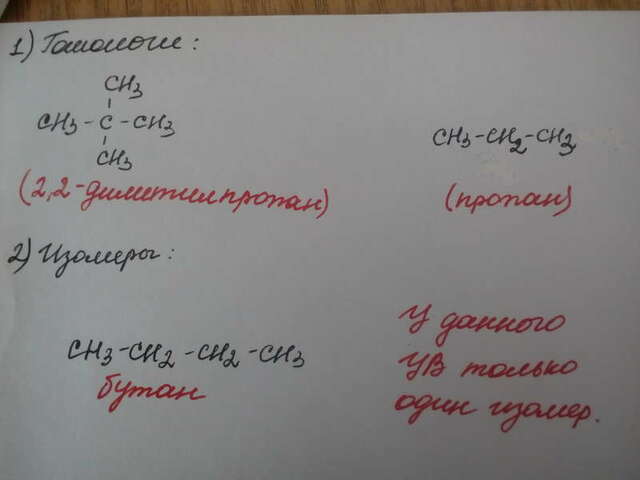 1) Гомологи:
CH3
CH3 - C - CH3
CH3
CH3-CH2-CH3
(2,2-диметилпропан)
(пропан)
2) Изомеры:
CH3-CH2-CH2-CH3
бутан
У данного
УВ только
один изомер.